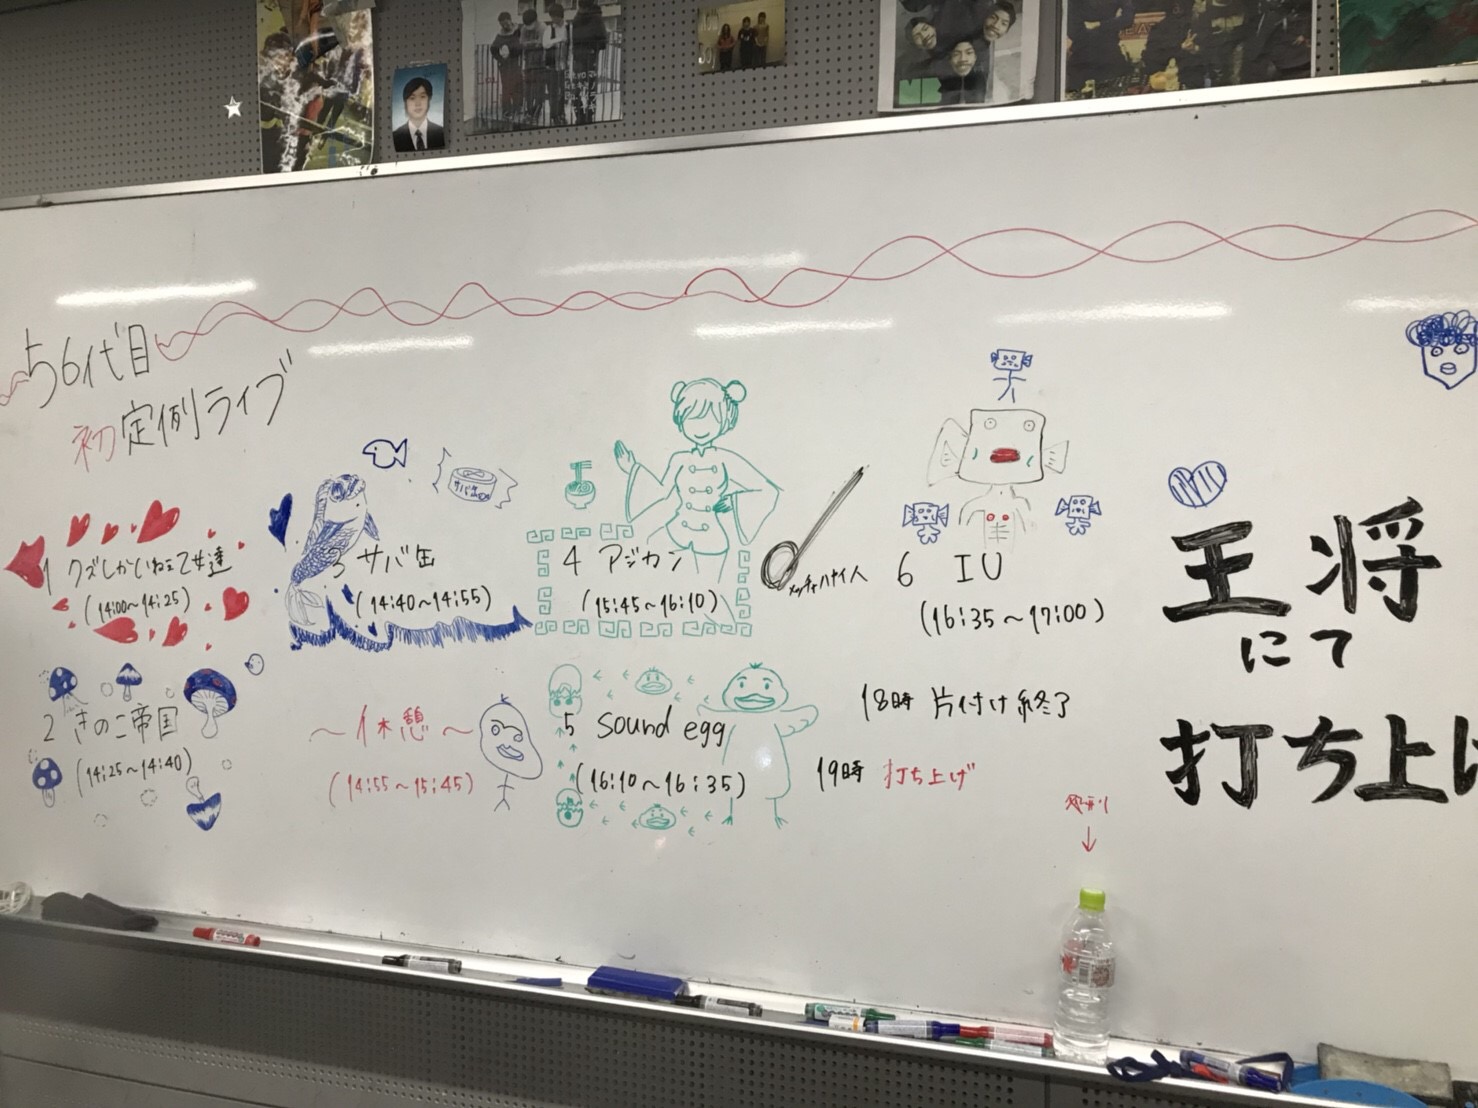 56代目
初定例ライブ
1 クズしかいねぇ乙女達
(14:00〜14:25)
2 きのこ帝国
(14:25〜14:40)
サバ缶
3 サバ缶
(14:40〜14:55)
〜休憩〜
(14:55〜15:45)
4 アジカン
(15:45〜16:10)
5 sound egg
(16:10〜16:35)
6 IU
(16:35〜17:00)
18時 片付け終了
19時 打ち上げ
王将
にて
打ち上げ